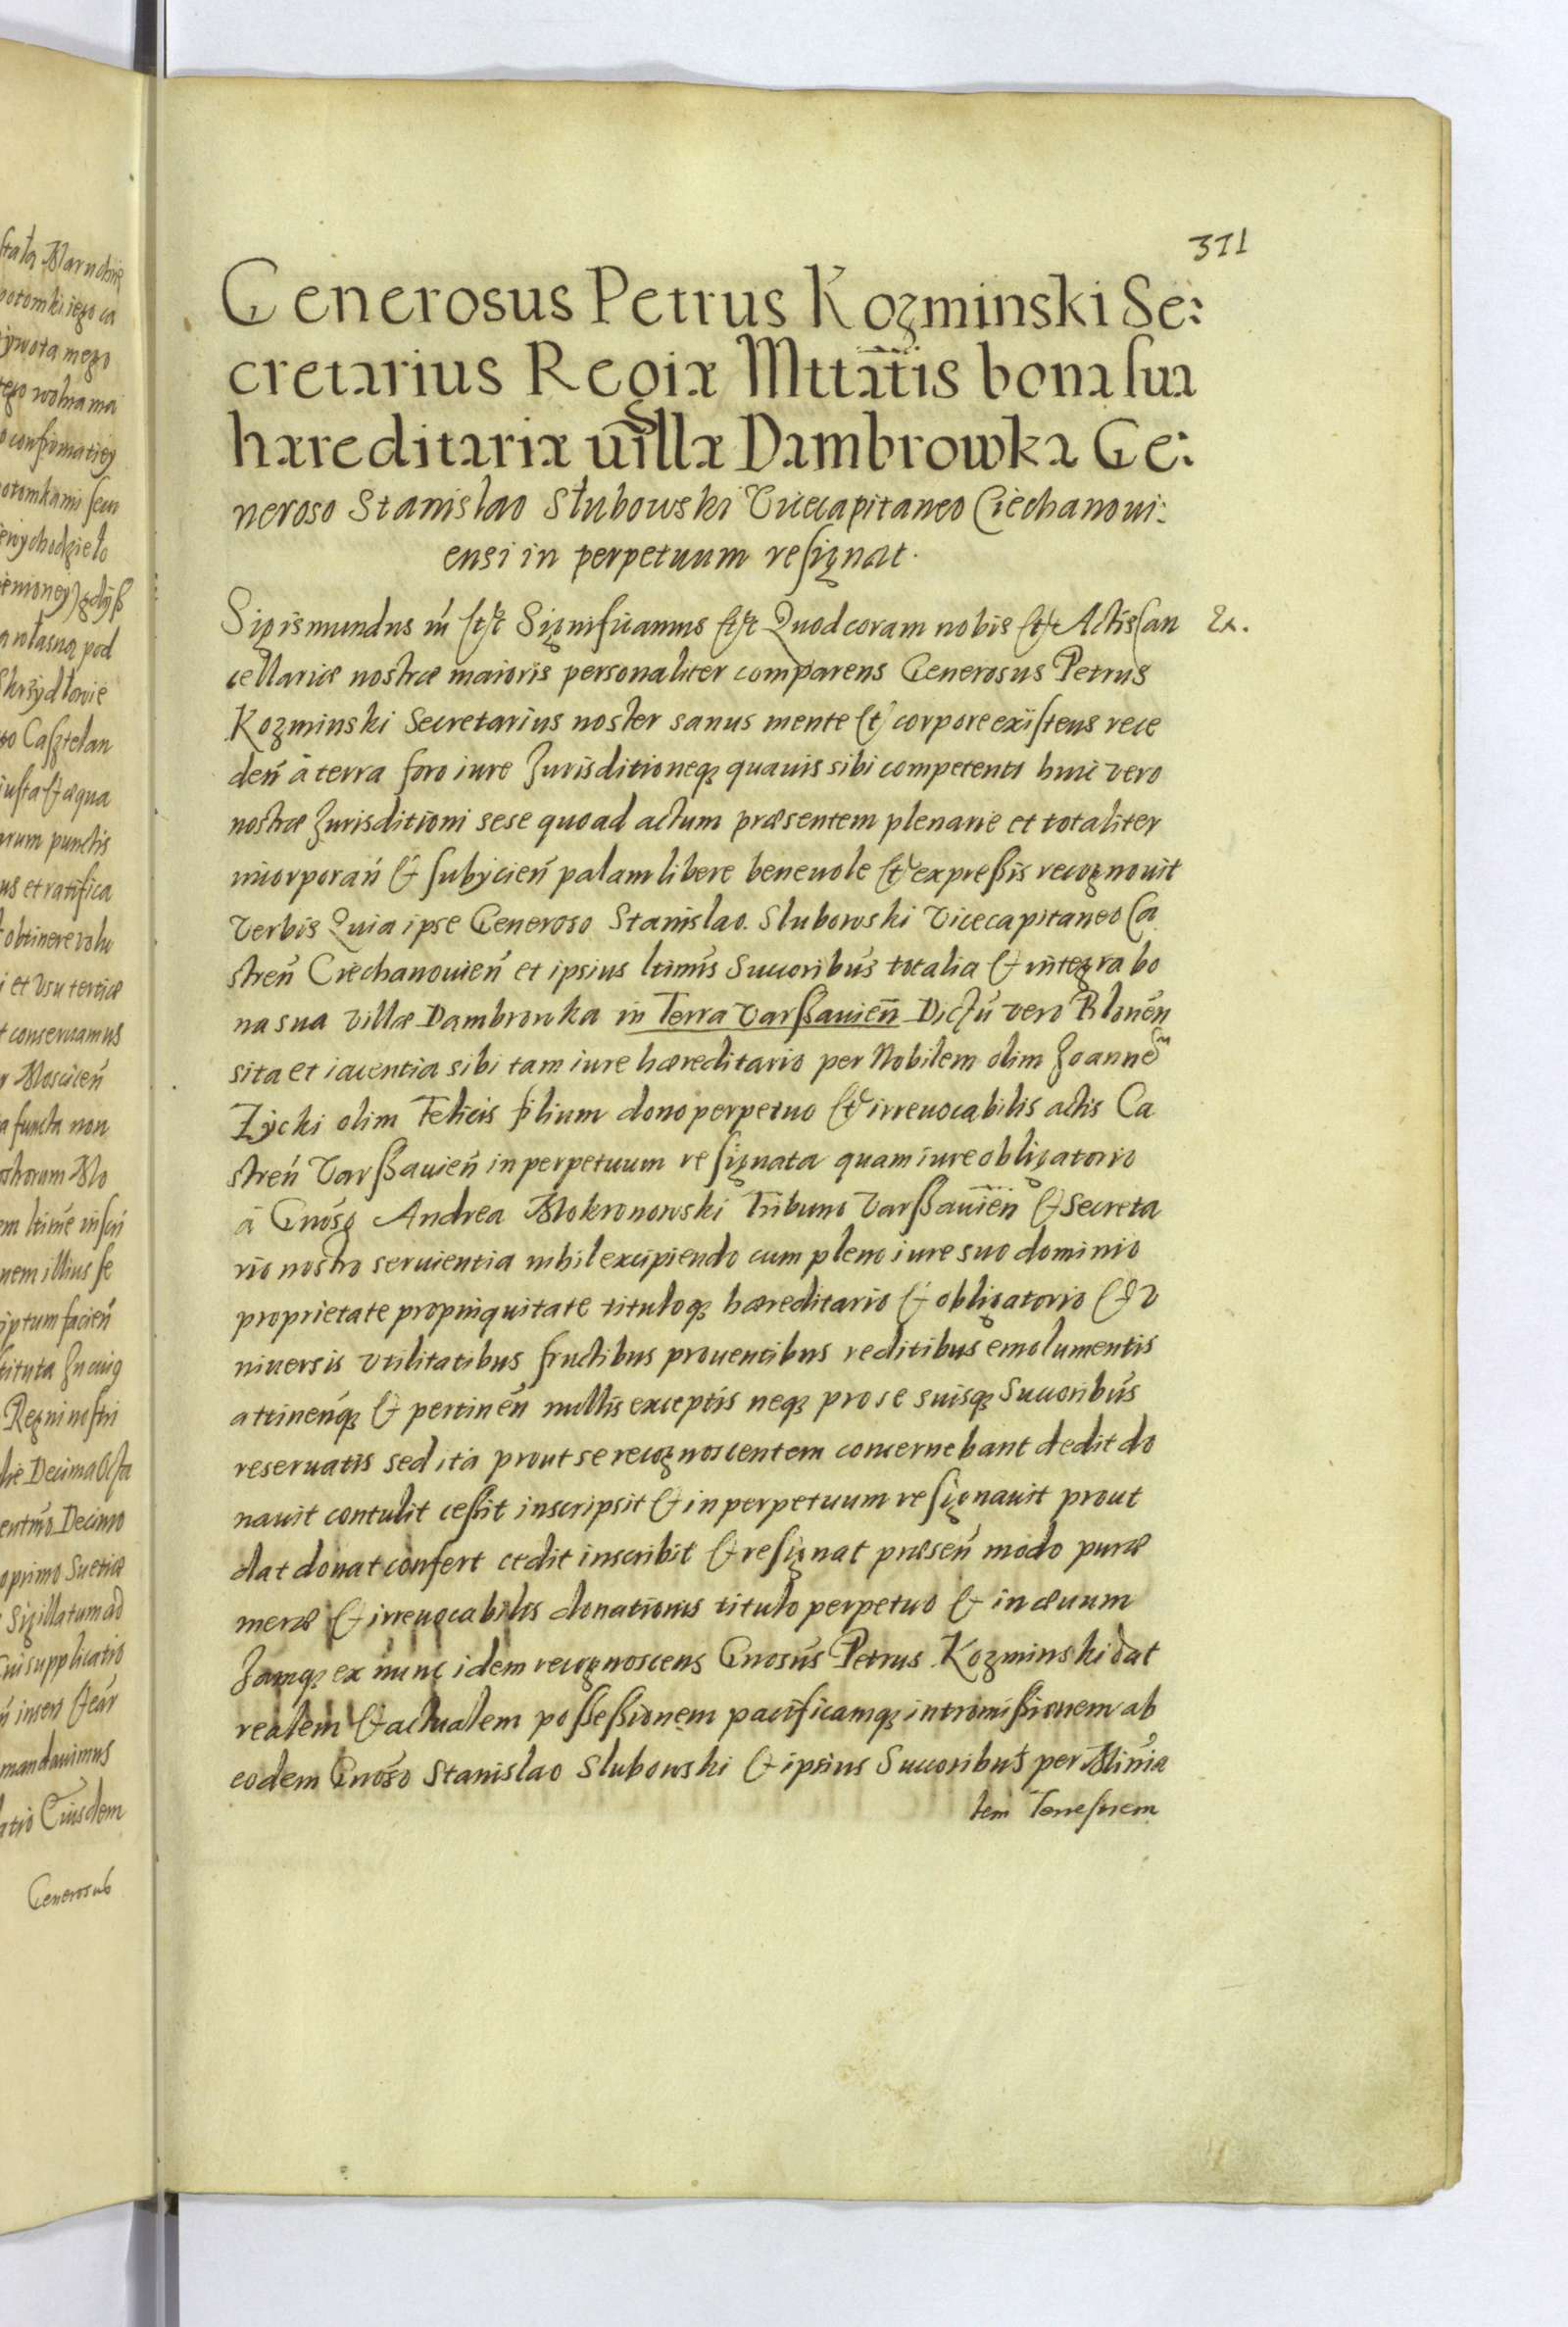 stała Maruchnę
potomki iego ca
żywota mego
tego wolna ma
o confirmatiey
potomkami swn
wychodzieło
własną pod
Skrzydłowie
Casztelan
iusta & æqua
arum punctis
us et ratifica
obtinere volu
i et vsu tertiæ
conseruamus
Moscicen̄
a functa non
nostrorum Mo
em ltime inscri
nem illius se
iptum facien̄
Regni nostri
die Decima Octa
Decimo
primo Suetiæ
Sigillatum ad
supplicatio
n̄ inseri
mandauimus
latio Eiusdem
Generosus
371
Generosus Petrus Kozminski Se:
cretarius Regiæ Mttātis bona sua
hæreditaria uillæ Dambrowka Ge:
neroso Stanislao Słubowski Vicecapitaneo Ciechanoui:
ensi in perpetuum resignat.
Sigismundus III &c Significamus &c Quod coram nobis & Actis Can
Ex.
cellariæ nostræ maioris personaliter comparens Generosus Petrus
Kozminski Secretarius noster sanus mente & corpore existens rece
den̄ à terra foro iure Jurisditioneq; quauis sibi competenti huic vero
nostræ Jurisditioni sese quoad actum præsentem plenarie et totaliter
incorporan̄ & subijcien̄ palam libere beneuole & expressis recognouit
verbis Quia ipse Generoso Stanislao Slubowski Vicecapitaneo Ca
stren̄ Ciechanouien̄ et ipsius ltimis Succoribus totalia & integra bo
na sua villæ Dambrowka in Terra Varssauien̄ Dictu vero Blonen̄
sita et iacentia sibi tam iure hæreditario per Nobilem olim Joannem
Zycki olim Felicis filium dono perpetuo & irreuocabilis actis Ca
stren̄ Varssauien̄ in perpetuum resignata quam iure obligatorio
à Gnoso Andrea Mokronowski Tribuno Varssauien̄ & Secreta
rio nostro seruientia nihil excipiendo cum pleno iure suo dominio
proprietate propinquitate tituloq; hæreditario & obligatorio & v
niuersis vtilitatibus fructibus prouentibus reditibus emolumentis
attinen̄q; & pertinen̄ nullis exceptis neq; pro se suisq; Succoribus
reseruatis sed ita prout se recognoscentem concernebant dedit do
nauit contulit cessit inscripsit & in perpetuum resignauit prout
dat donat confert cedit inscribit & resignat præsen̄ modo puræ
meræ & irreuocabilis donationis titulo perpetuo & in æuum
Jamq; ex nunc idem recognoscens Gnosus Petrus Kozminski dat
realem & actualem possessionem pacificamq; intromissionem ab
eodem Gnoso Stanislao Slubowski & ipsius Succoribus per Minia
lem Terrestrem